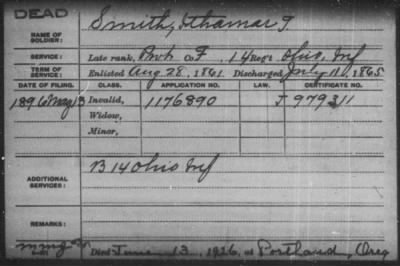 DEAD
NAME OF SOLDIER: Smith, Ithamar T.
SERVICE: Late rank, Pvt Co. F, 14 Reg't Ohio Inf
TERM OF SERVICE: Enlisted Aug 28, 1861, Discharged July 11, 1865
DATE OF FILING. CLASS. APPLICATION NO. LAW. CERTIFICATE NO.
1896 May 13 Invalid, 1176890 J 979311
Widow,
Minor,
ADDITIONAL SERVICES: B 14 Ohio Inf
REMARKS:
Died June 13, 1926, at Portland, Oreg